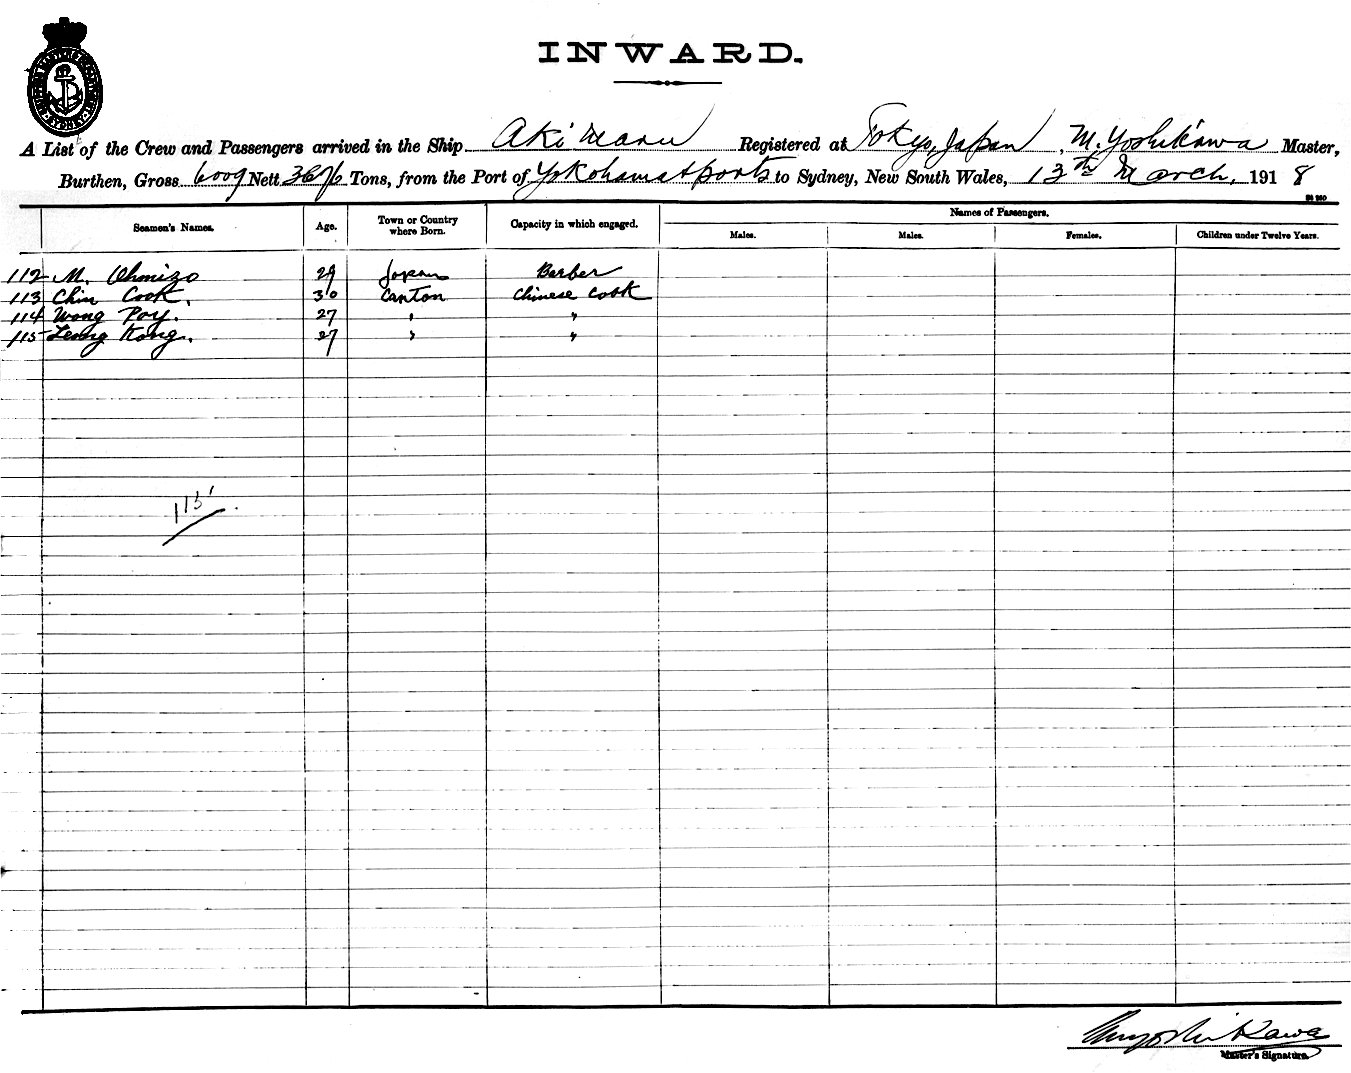 INWARD.
A List of the Crew and Passengers arrived in the Ship Aki Maru Registered at Tokyo, Japan, M. Yoshikawa Master,
Burthen, Gross 6009 Nett 3676 Tons, from the Port of Yokohama & ports to Sydney, New South Wales, 13th March, 1918
Seamen's Names. Age. Town or Country where Born. Capacity in which engaged. Names of Passengers.
Males. Males. Females. Children under Twelve Years.
112 M. Ohmizo 29 Japan Barber
113 Chin Cook. 30 Canton Chinese Cook
114 Wong Poy. 27 " "
115 Leong Kong. 27 " "
115
Master's Signature.